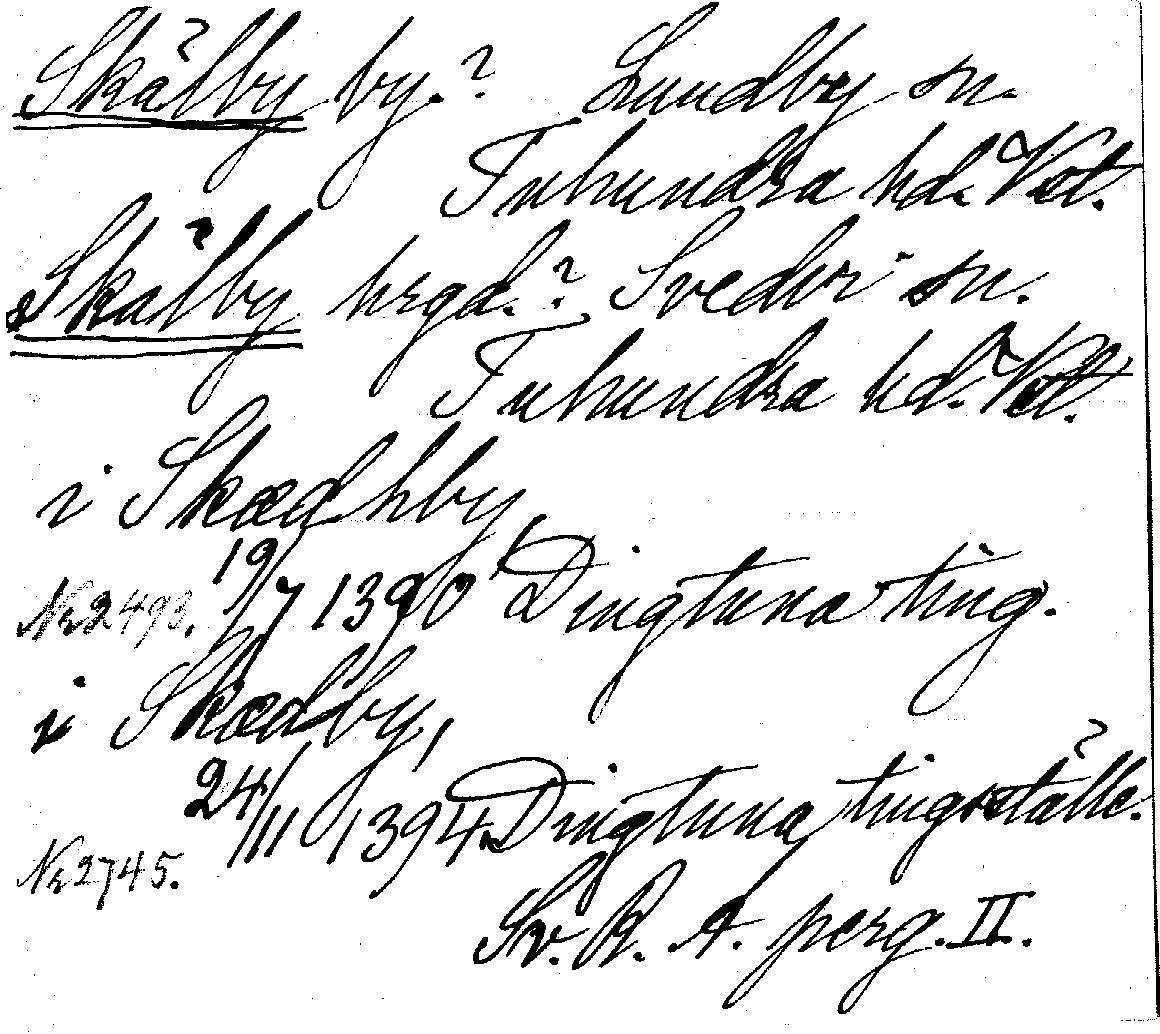 Skälby by.? Lundby sn.
Tuhundra hd. Vstl.
Skälby hrgd.? Svedvi sn.
Tuhundra hd. Vstl.
i Skædhby,
Nr 2493. 19/7 1390 Dingtuna ting.
i Skædby,
24/11 1394. Dingtuna tingställe.
Nr 2745.
Sv. R. A. perg. II.